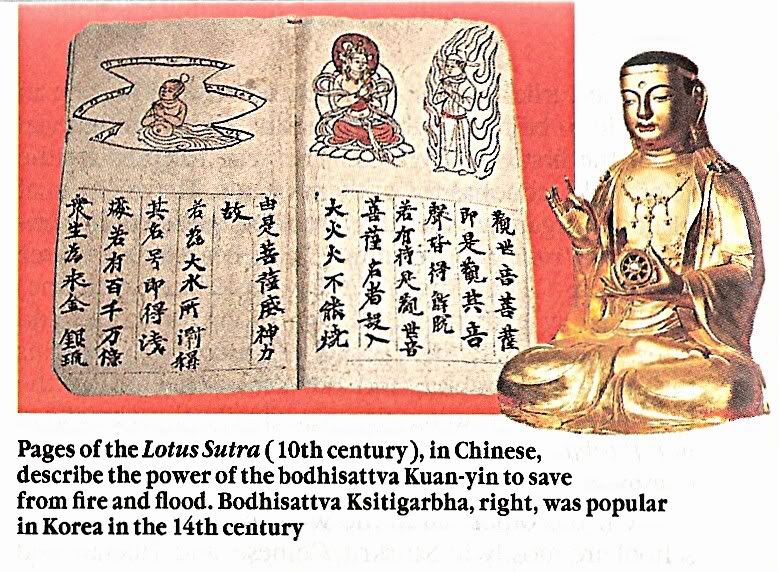 觀世音菩薩
即是觀其音
聲皆得解脫
若有持是觀世音
菩薩名者設入
大火火不能燒
由是菩薩威神力
故
若為大水所漂稱
其名号即得淺
處若有百千万億
眾生為求金銀琉
Pages of the Lotus Sutra (10th century), in Chinese,
describe the power of the bodhisattva Kuan-yin to save
from fire and flood. Bodhisattva Ksitigarbha, right, was popular
in Korea in the 14th century